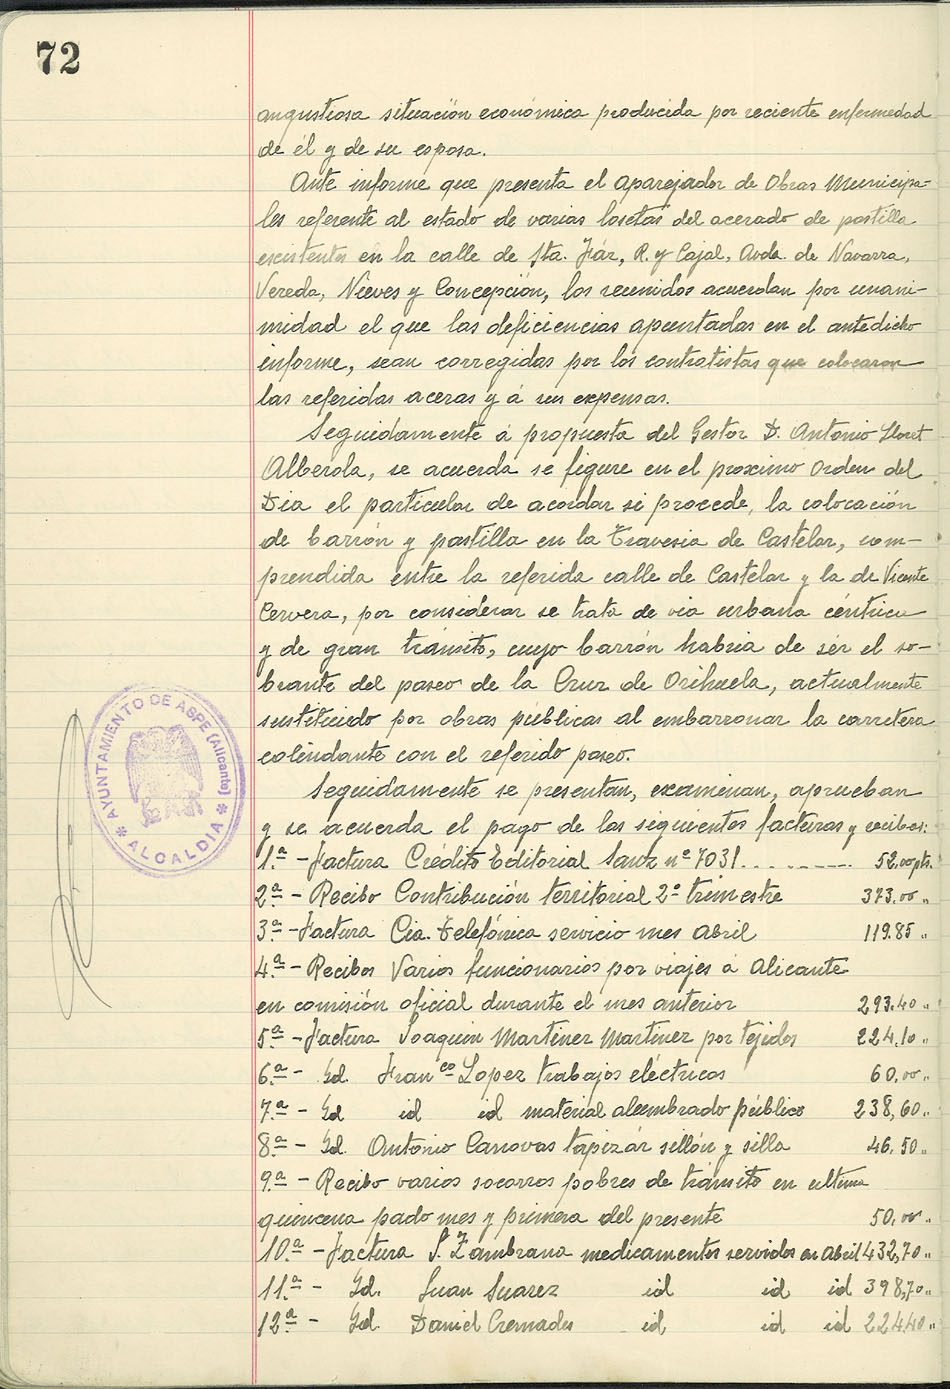 72
angustiosa situación económica producida por reciente enfermedad
de él y de su esposa.
Ante informe que presenta el Aparejador de Obras Municipa-
les referente al estado de varias losetas del acerado de pastilla
escistentes en la calle de Sta. Fáz, R. y Cajal, Avda. de Navarra,
Vereda, Nieves y Concepción, los reunidos acuerdan por unani-
midad el que las deficiencias apuntadas en el antedicho
informe, sean corregidas por los contratistas que colocaron
las referidas aceras y á sus expensas.
Seguidamente á propuesta del Gestor D. Antonio Lloret
Alberola, se acuerda se figure en el proximo Orden del
Dia el particular de acordar si procede, la colocación
de barrón y pastilla en la Travesia de Castelar, com-
prendida entre la referida calle de Castelar y la de Vicente
Cervera, por considerar se trata de via urbana céntrica
y de gran tránsito, cuyo barrón habria de sér el so-
brante del paseo de la Cruz de Orihuela, actualmente
sustituido por obras públicas al embarronar la carretera
colindante con el referido paseo.
Seguidamente se presentan, examinan, aprueban
y se acuerda el pago de las siguientes facturas y recibos:
1.ª - Factura Crédito Editorial Sanz nº 7031 . . - - - - - - 52,00 pts.
2.ª - Recibo Contribución territorial 2º trimestre 373.00 "
3.ª - Factura Cia. Telefónica servicio mes Abril 119.85 "
4.ª - Recibos Varios funcionarios por viajes á Alicante
en comisión oficial durante el mes anterior 293.40 "
5.ª - Factura Joaquin Martinez Martinez por tejidos 224.10 "
6.ª - Id. Fran.co Lopez trabajos eléctricos 60,00 "
7.ª - Id id id material alumbrado público 238,60 "
8.ª - Id. Antonio Canovas tapizár sillón y silla 46.50 "
9.ª - Recibo varios socorros pobres de tránsito en ultima
quincena pado mes y primera del presente 50,00 "
10.ª - Factura S. Zambrana medicamentos servidos en Abril 432,70 "
11.ª - Id. Juan Suarez id id id 398,70 "
12.ª - Id. Daniel Cremades id id id 224.40 "
* AYUNTAMIENTO DE ASPE (Alicante) *
ALCALDIA